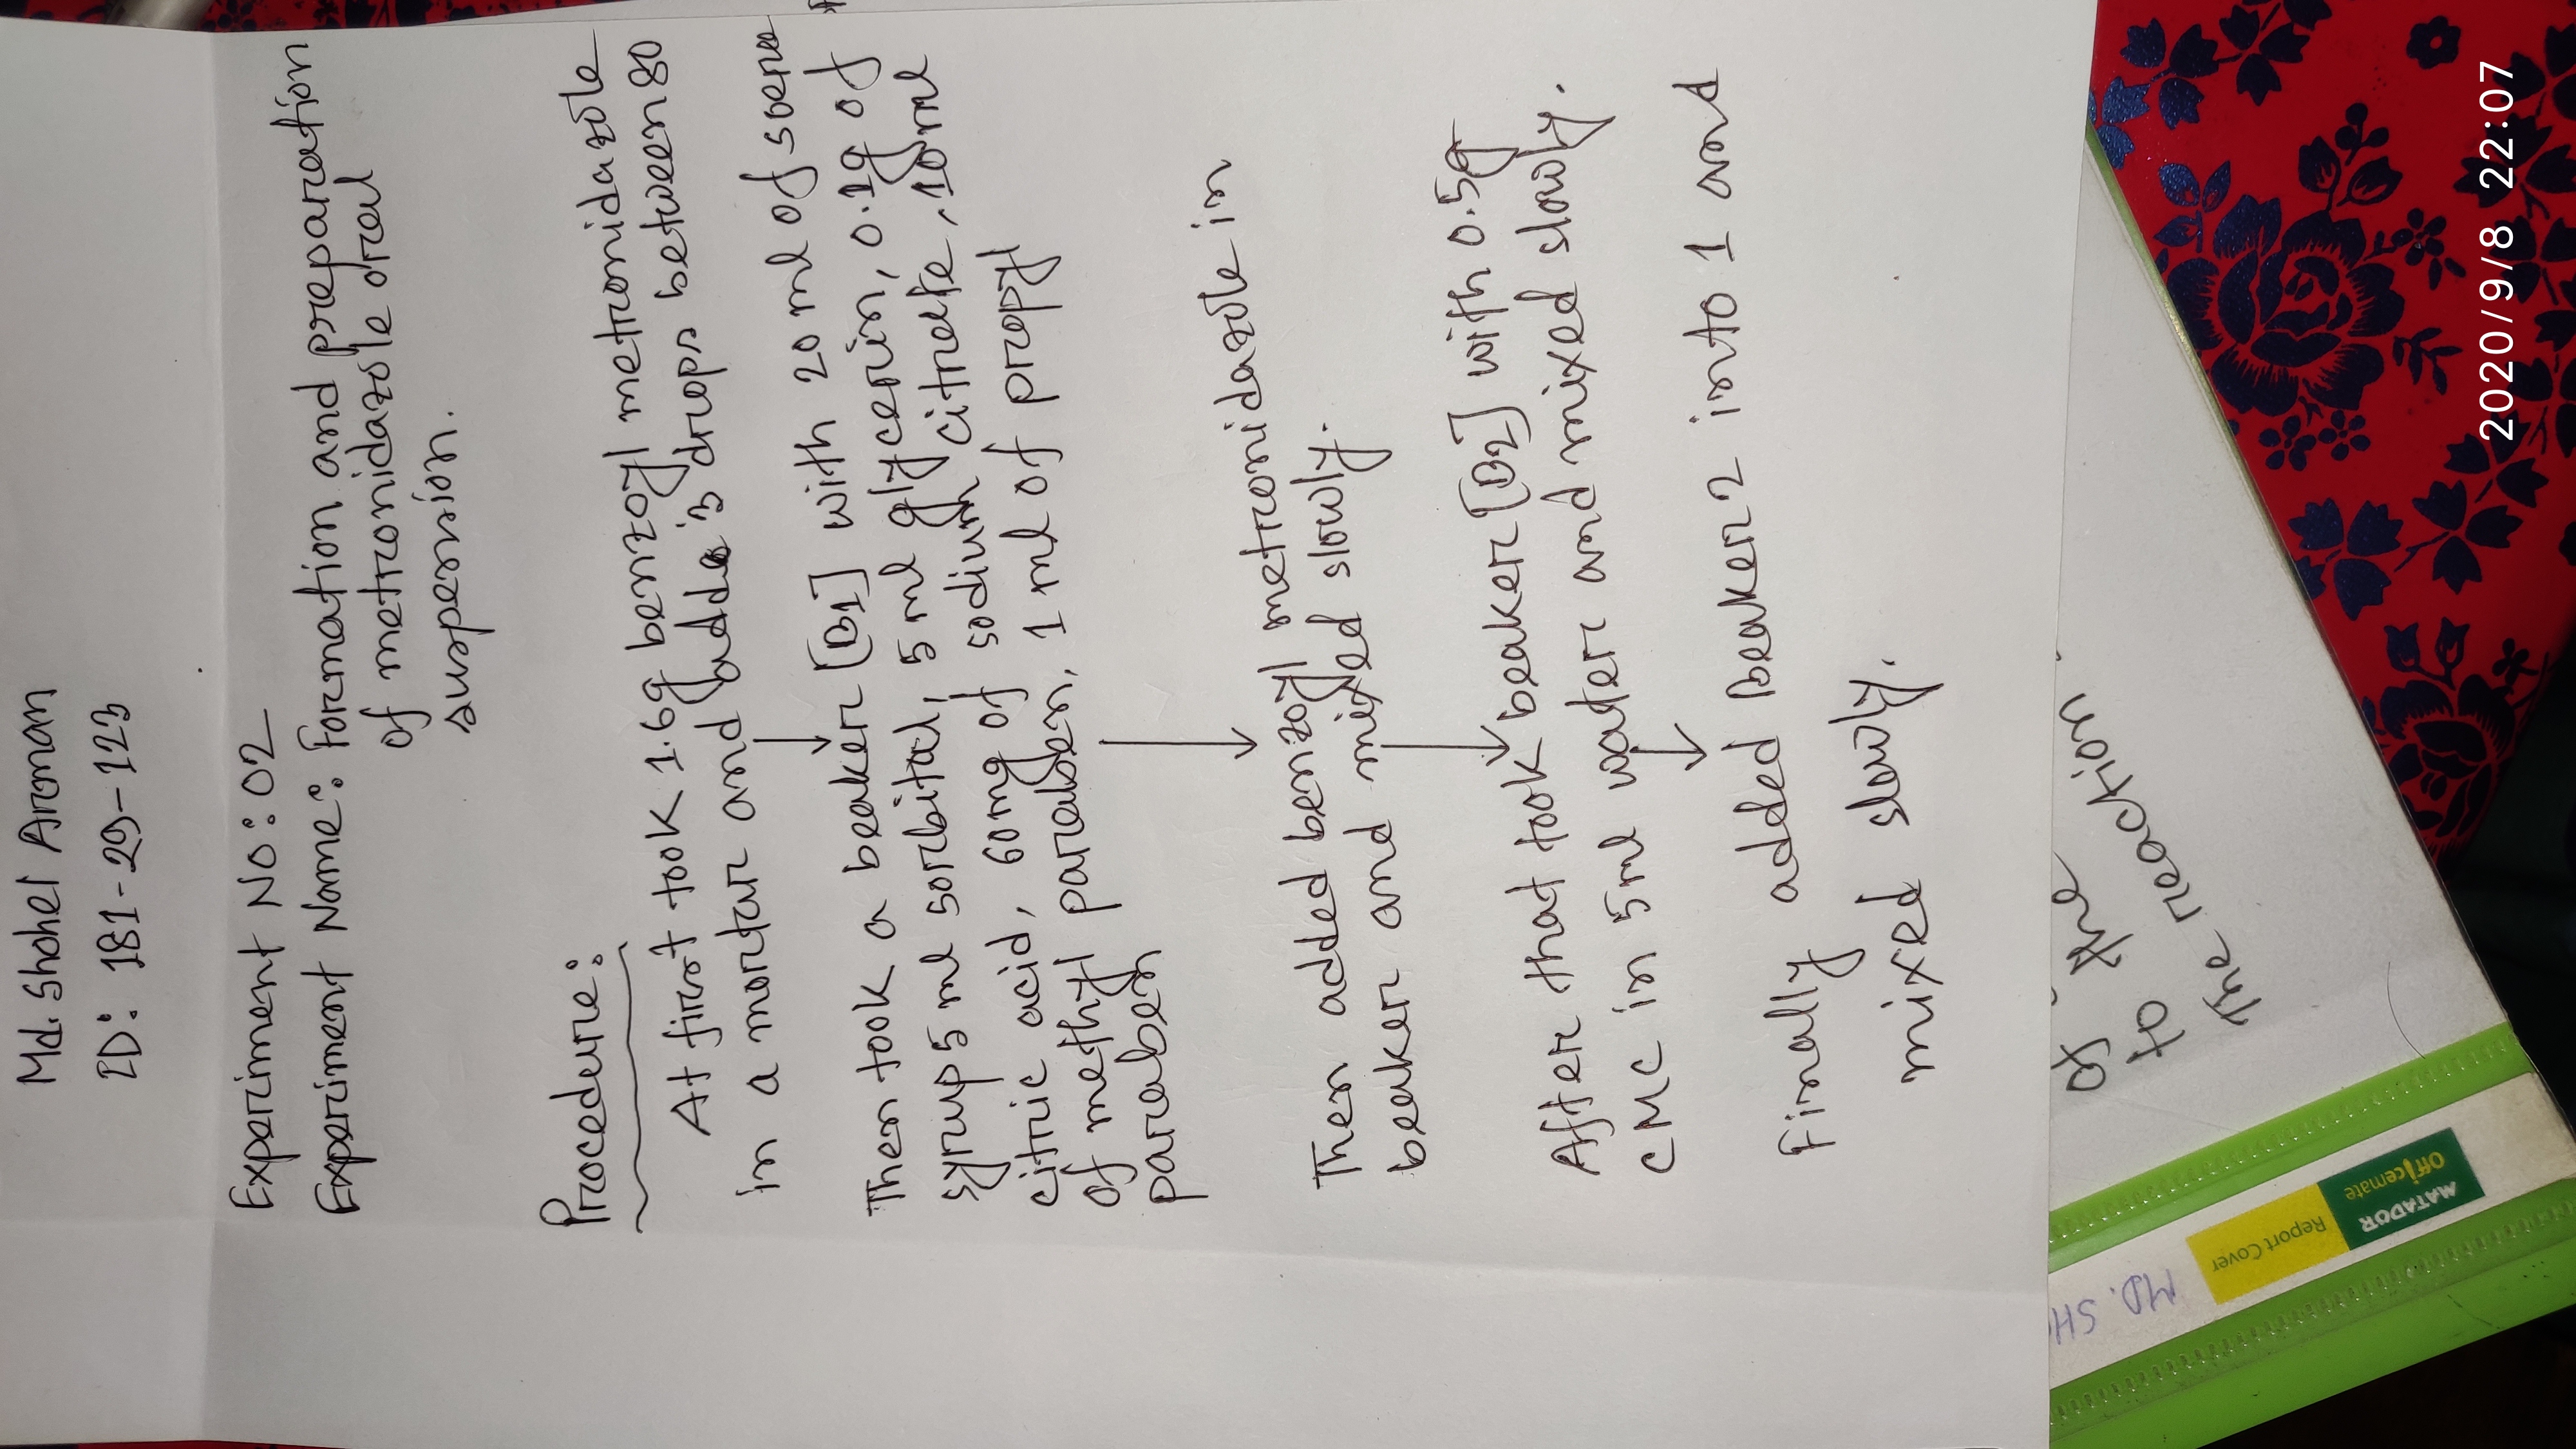 Md. Shohel Arman
ID: 181-29-123
Experiment No: 02
Experiment Name: Formation and preparation
of metronidazole oral
suspension.
Procedure:
At first took 1.6g benzoyl metronidazole
in a mortar and add 3 drops between 80
Then took a beaker [B1] with 20 ml of
syrup 5 ml sorbital, 5 ml glycerin, 0.1g of
citric acid, 60mg of sodium citrate, 10 ml
of methyl paraben, 1 ml of propyl
paraben
Then added benzoyl metronidazole in
beaker and mixed slowly.
After that took beaker [B2] with 0.5g
CMC in 5ml water and mixed slowly.
Finally added Beaker 2 into 1 and
mixed slowly.
of
to the
The reaction
MD. SH
Report Cover
MATADOR
Officemate
2020/9/8 22:07